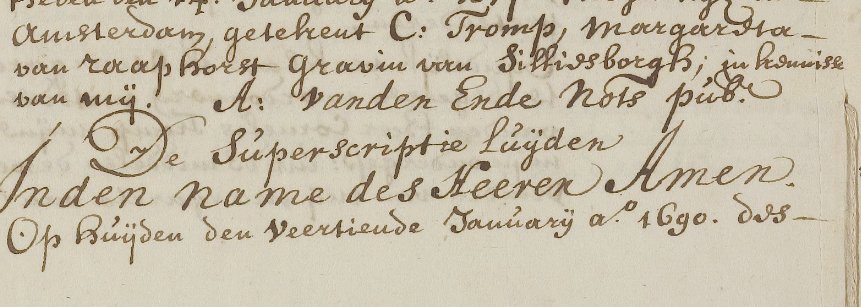 Amsterdam, getekent C: Tromp, Margareta
van raaphorst Gravin van Silliesborgh; in kennisse
van mij. A: vanden Ende Nots pub.
De Superscriptie Luijden
In den name des Heeren Amen.
Op huijden den veertiende Januarij a.o 1690. des—